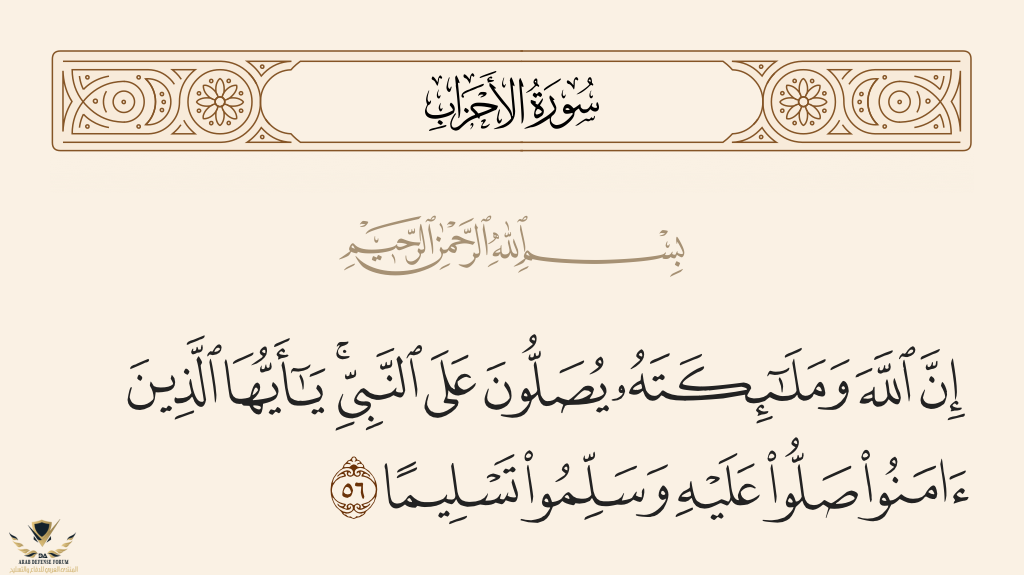 سُورَةُ الأَحْزَابِ
بِسْمِ ٱللَّهِ ٱلرَّحْمَٰنِ ٱلرَّحِيمِ
إِنَّ ٱللَّهَ وَمَلَـٰٓئِكَتَهُۥ يُصَلُّونَ عَلَى ٱلنَّبِىِّ ۚ يَـٰٓأَيُّهَا ٱلَّذِينَ
ءَامَنُوا۟ صَلُّوا۟ عَلَيْهِ وَسَلِّمُوا۟ تَسْلِيمًا ٥٦
ARAB DEFENSE FORUM